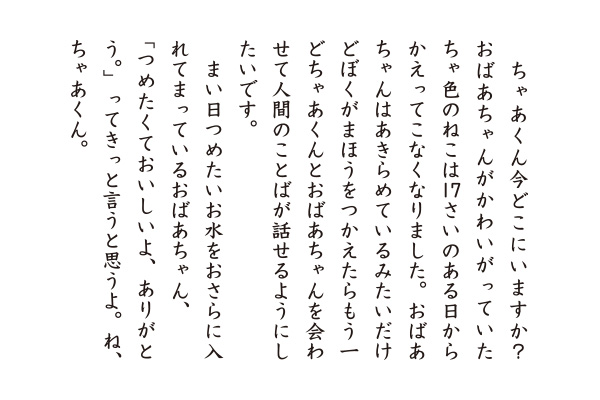 ちゃあくん今どこにいますか？
おばあちゃんがかわいがっていた
ちゃ色のねこは17さいのある日から
かえってこなくなりました。おばあ
ちゃんはあきらめているみたいだけ
どぼくがまほうをつかえたらもう一
どちゃあくんとおばあちゃんを会わ
せて人間のことばが話せるようにし
たいです。
まい日つめたいお水をおさらに入
れてまっているおばあちゃん、
「つめたくておいしいよ、ありがと
う。」ってきっと言うと思うよ。ね、
ちゃあくん。